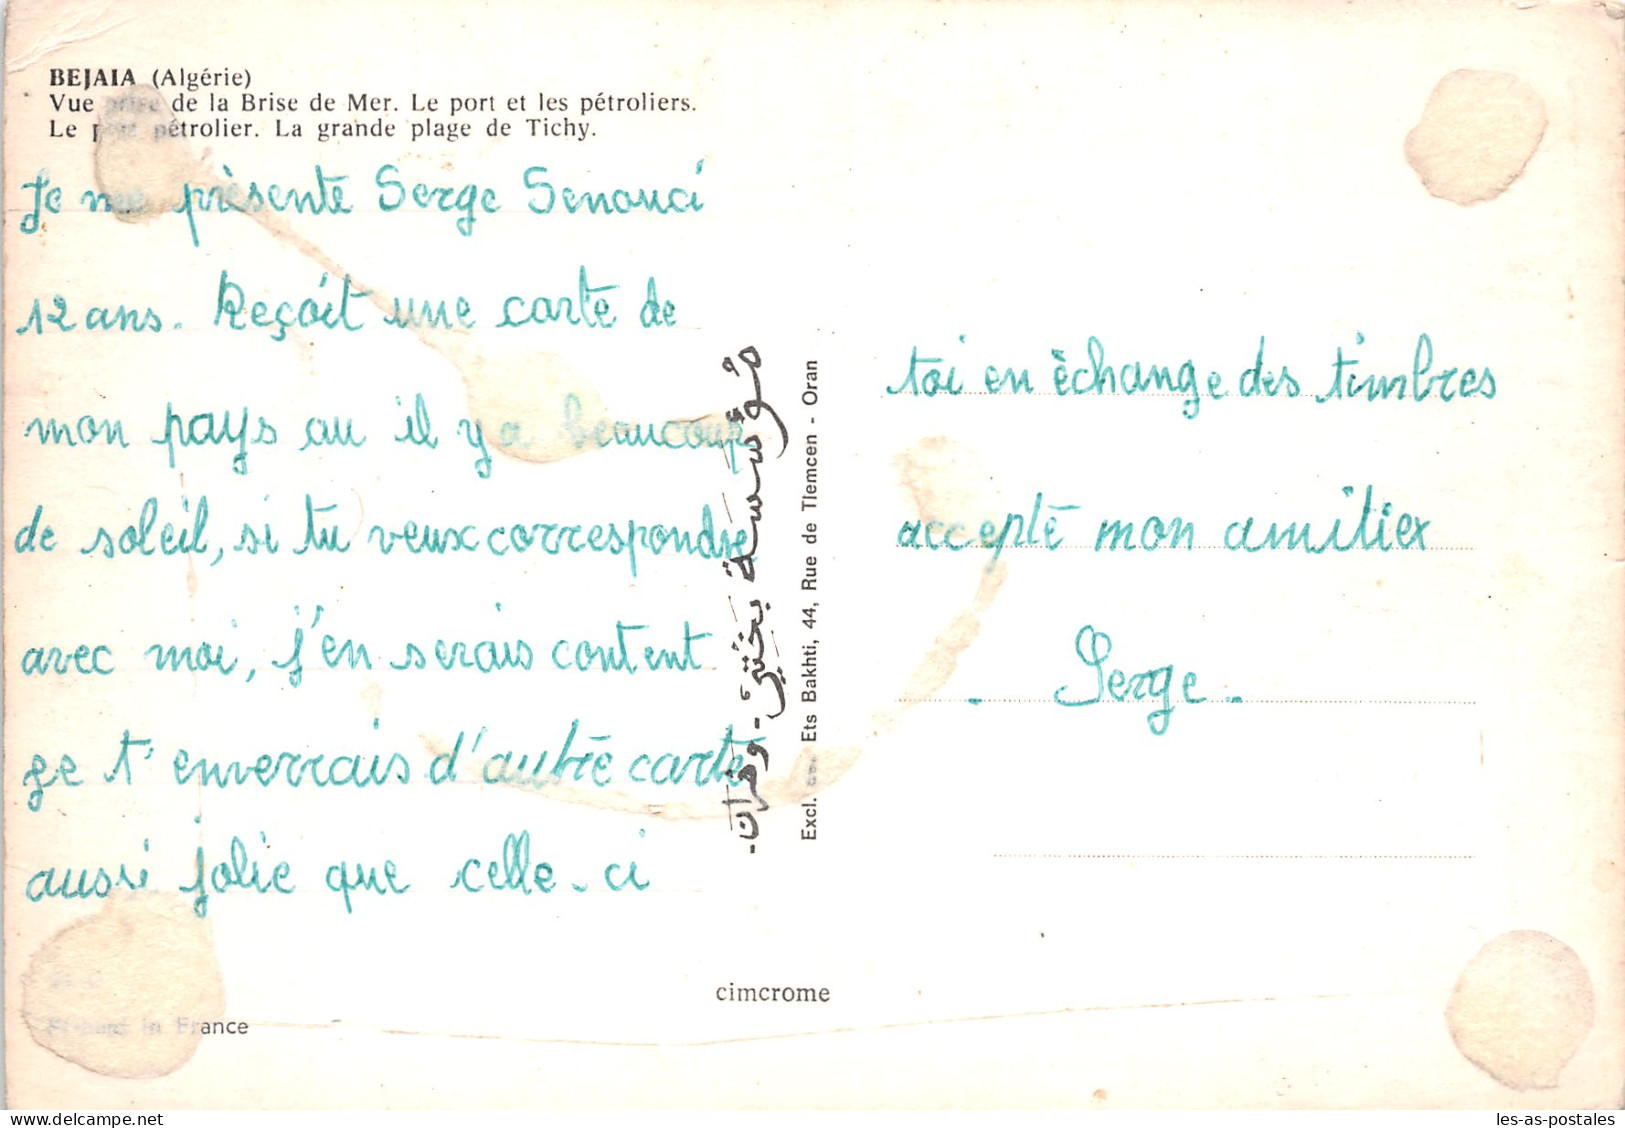 BEJAIA (Algérie)
Vue prise de la Brise de Mer. Le port et les pétroliers.
Le port pétrolier. La grande plage de Tichy.
Je me présente Serge Senouci
12 ans. Reçoit une carte de
mon pays au il y a beaucoup
de soleil, si tu veux correspondre
avec moi, j'en serais content
ge t'enverrais d'autre carte
aussi jolie que celle-ci
مؤسسة بختي - وهران -
Excl. Ets Bakhti, 44, Rue de Tlemcen - Oran
toi en èchange des timbres
accepte mon amitiex
- Serge -
cimcrome
Printed in France
les-as-postales